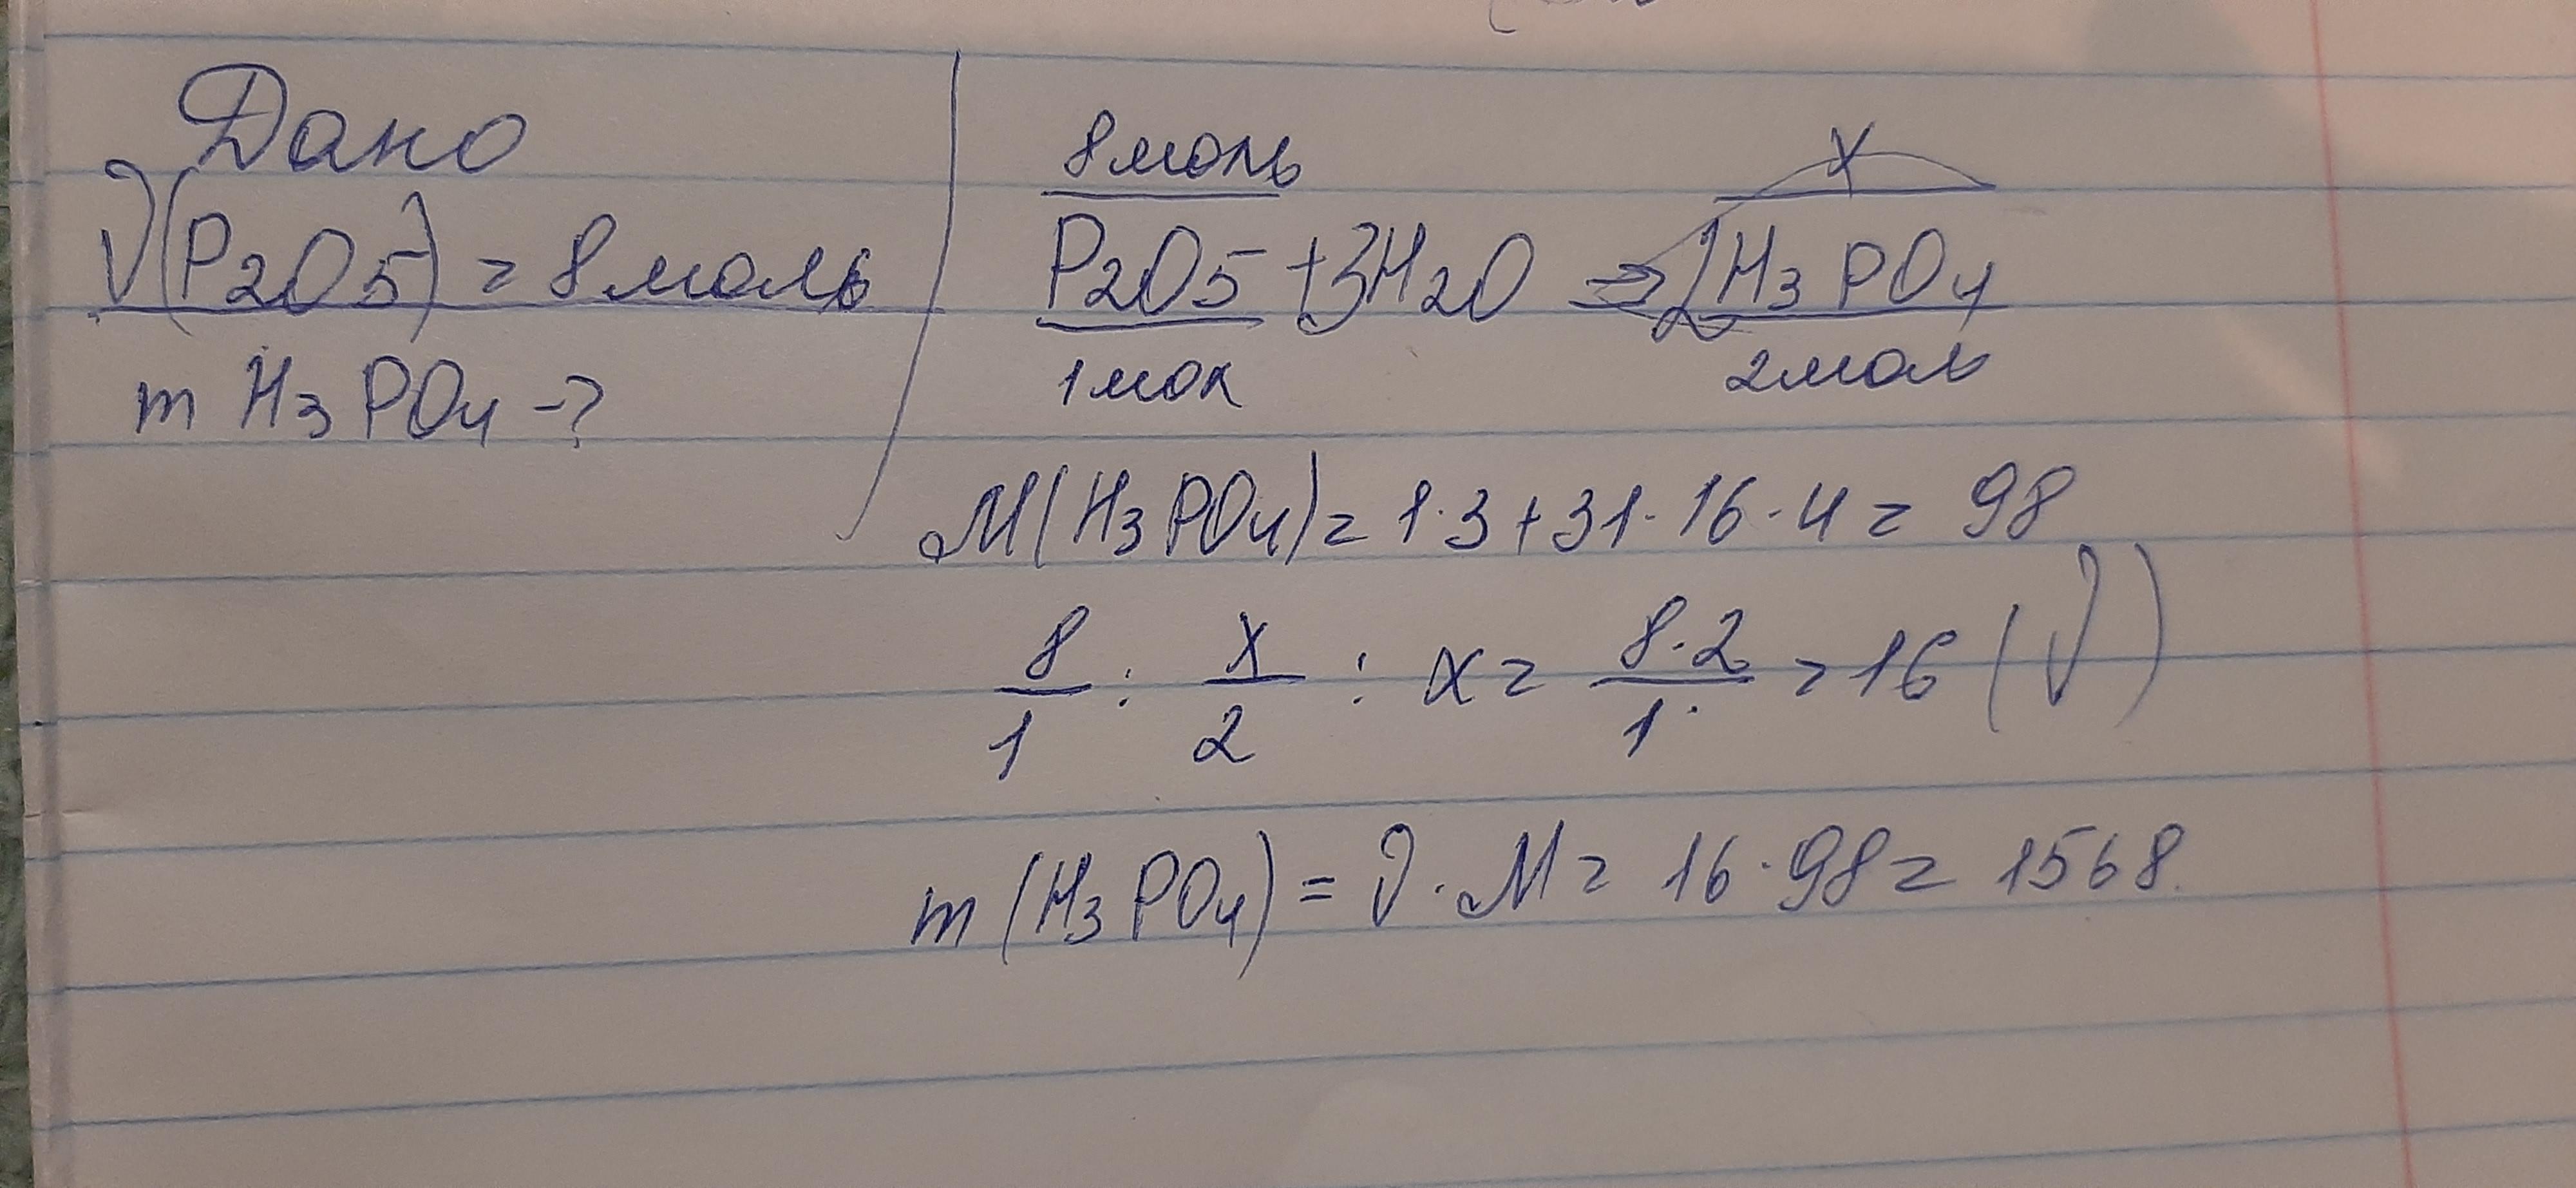 Дано
ν(P2O5) = 8 моль
m H3PO4 -?
8 моль x
P2O5 + 3H2O => 2H3PO4
1 мол 2 моль
M(H3PO4) = 1·3+31·16·4 = 98
8/1 : x/2 : x = 8·2/1 = 16 (ν)
m (H3PO4) = ν · M = 16 · 98 = 1568.